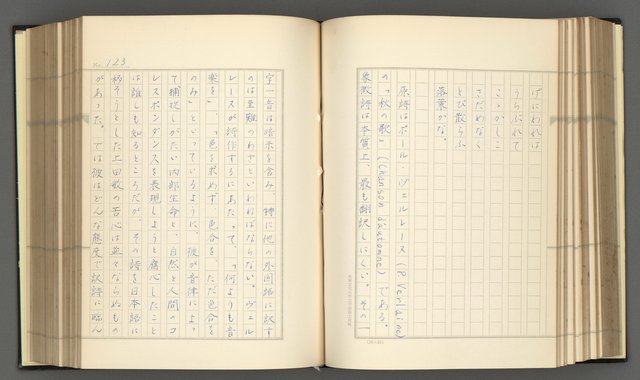 げにわれは
うらぶれて
こゝかしこ
さだめなく
とび散らふ
落葉かな。
原詩はポール・ヴェルレース(P. Verlaine)
の「秋の歌」(Chanson d'automne)である。
象徴詩は本質上、最も翻訳しにくい。その一
No. 123
字一音は暗示を含み、特に他の外国語に訳す
のは至難のわざといわねばならない。ヴェル
レースが詩作するにあたって、「何よりも音
楽を」、「色を求めず、色合を、ただ色合を
のみ」といっているように、彼が音律によっ
て捕捉しがたい内部生命と、自然と人間のコ
レスポンダンスを表現しようと腐心したこと
は誰しも知るところだが、その詩を日本語に
移そうとした上田敏の苦心は並々ならぬもの
があった。では彼はどんな態度で訳詩に臨ん